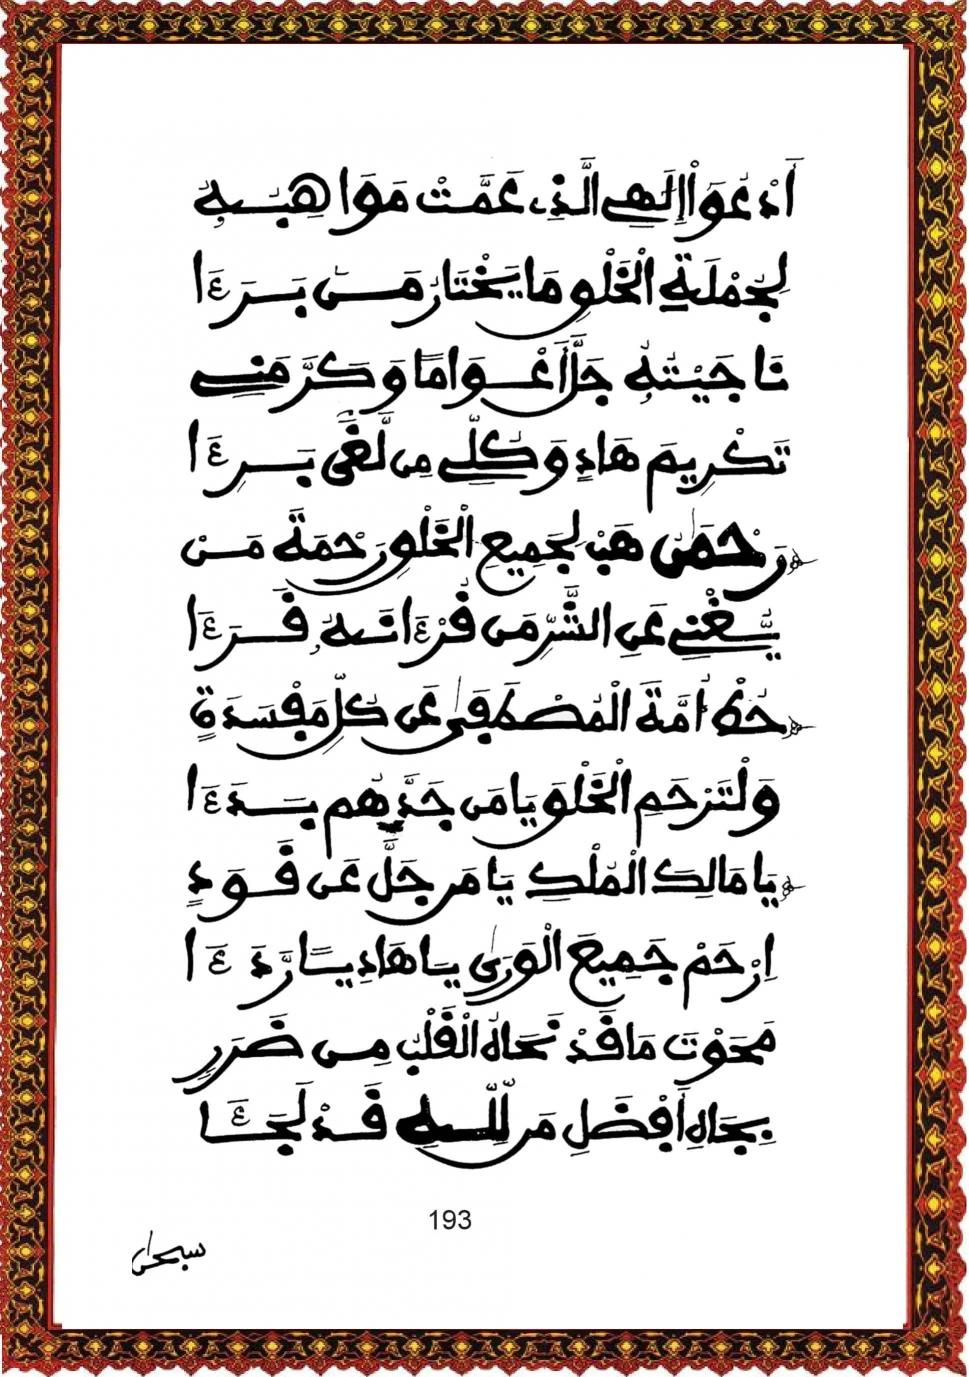 أَدْعُوا إِلَهِي الَّذِي عَمَّتْ مَوَاهِبُهُ
لِجُمْلَةِ الْخَلْقِ مَا يَخْتَارُ مَنْ بَرَءَا
نَاجَيْتُهُ جَلَّ أَعْوَامًا وَكَرَّمَنِي
تَكْرِيمَ هَادٍ وَكُلِّي مِن لَّغًى بَرِءَا
رَحْمَنُ هَبْ لِجَمِيعِ الْخَلْقِ رَحْمَةَ مَنْ
يُغْنِي عَنِ الشَّرِّ مَن قُرْءَانَهُ قَرَءَا
حُطْ أُمَّةَ الْمُصْطَفَى عَن كُلِّ مَفْسَدَةٍ
وَلْتَرْحَمِ الْخَلْقَ يَا مَن جَدَّهُم بَدَءَا
يَا مَالِكَ الْمُلْكِ يَا مَن جَلَّ عَن قَوَدٍ
اِرْحَمْ جَمِيعَ الْوَرَى يَا هَادِيًا رَدَءَا
مَحَوْتَ مَا قَدْ نَحَاهُ الْقَلْبُ مِن ضَرَرٍ
بِجَاهِ أَفْضَلِ مَن لِلَّهِ قَدْ لَجَءَا
193
سبحان